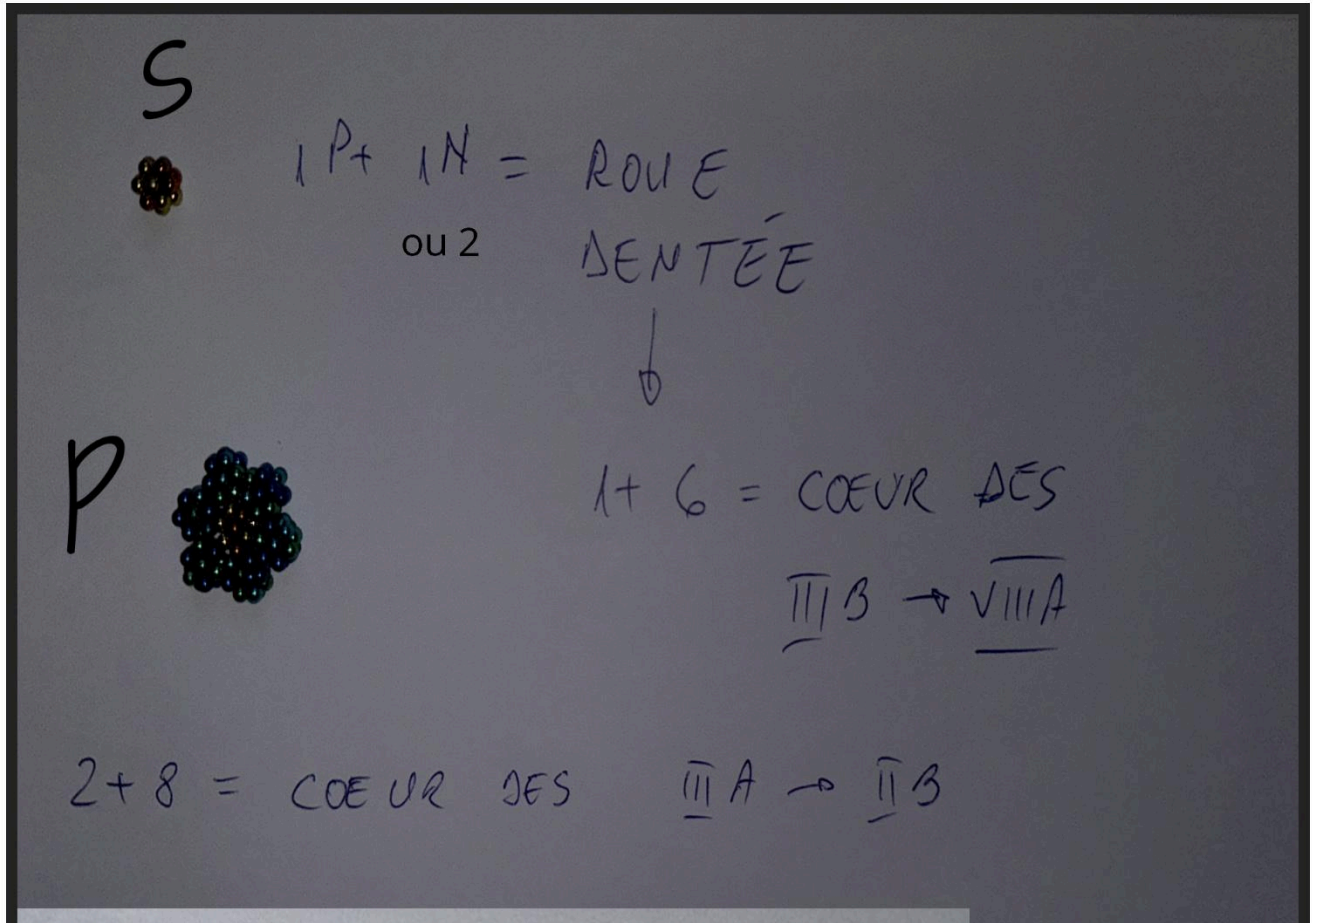 S
1P+ 1N = ROUE
ou 2
DENTÉE
P
1+ 6 = CŒUR DES
III B → VIII A
2+8 = COEUR DES III A → II B